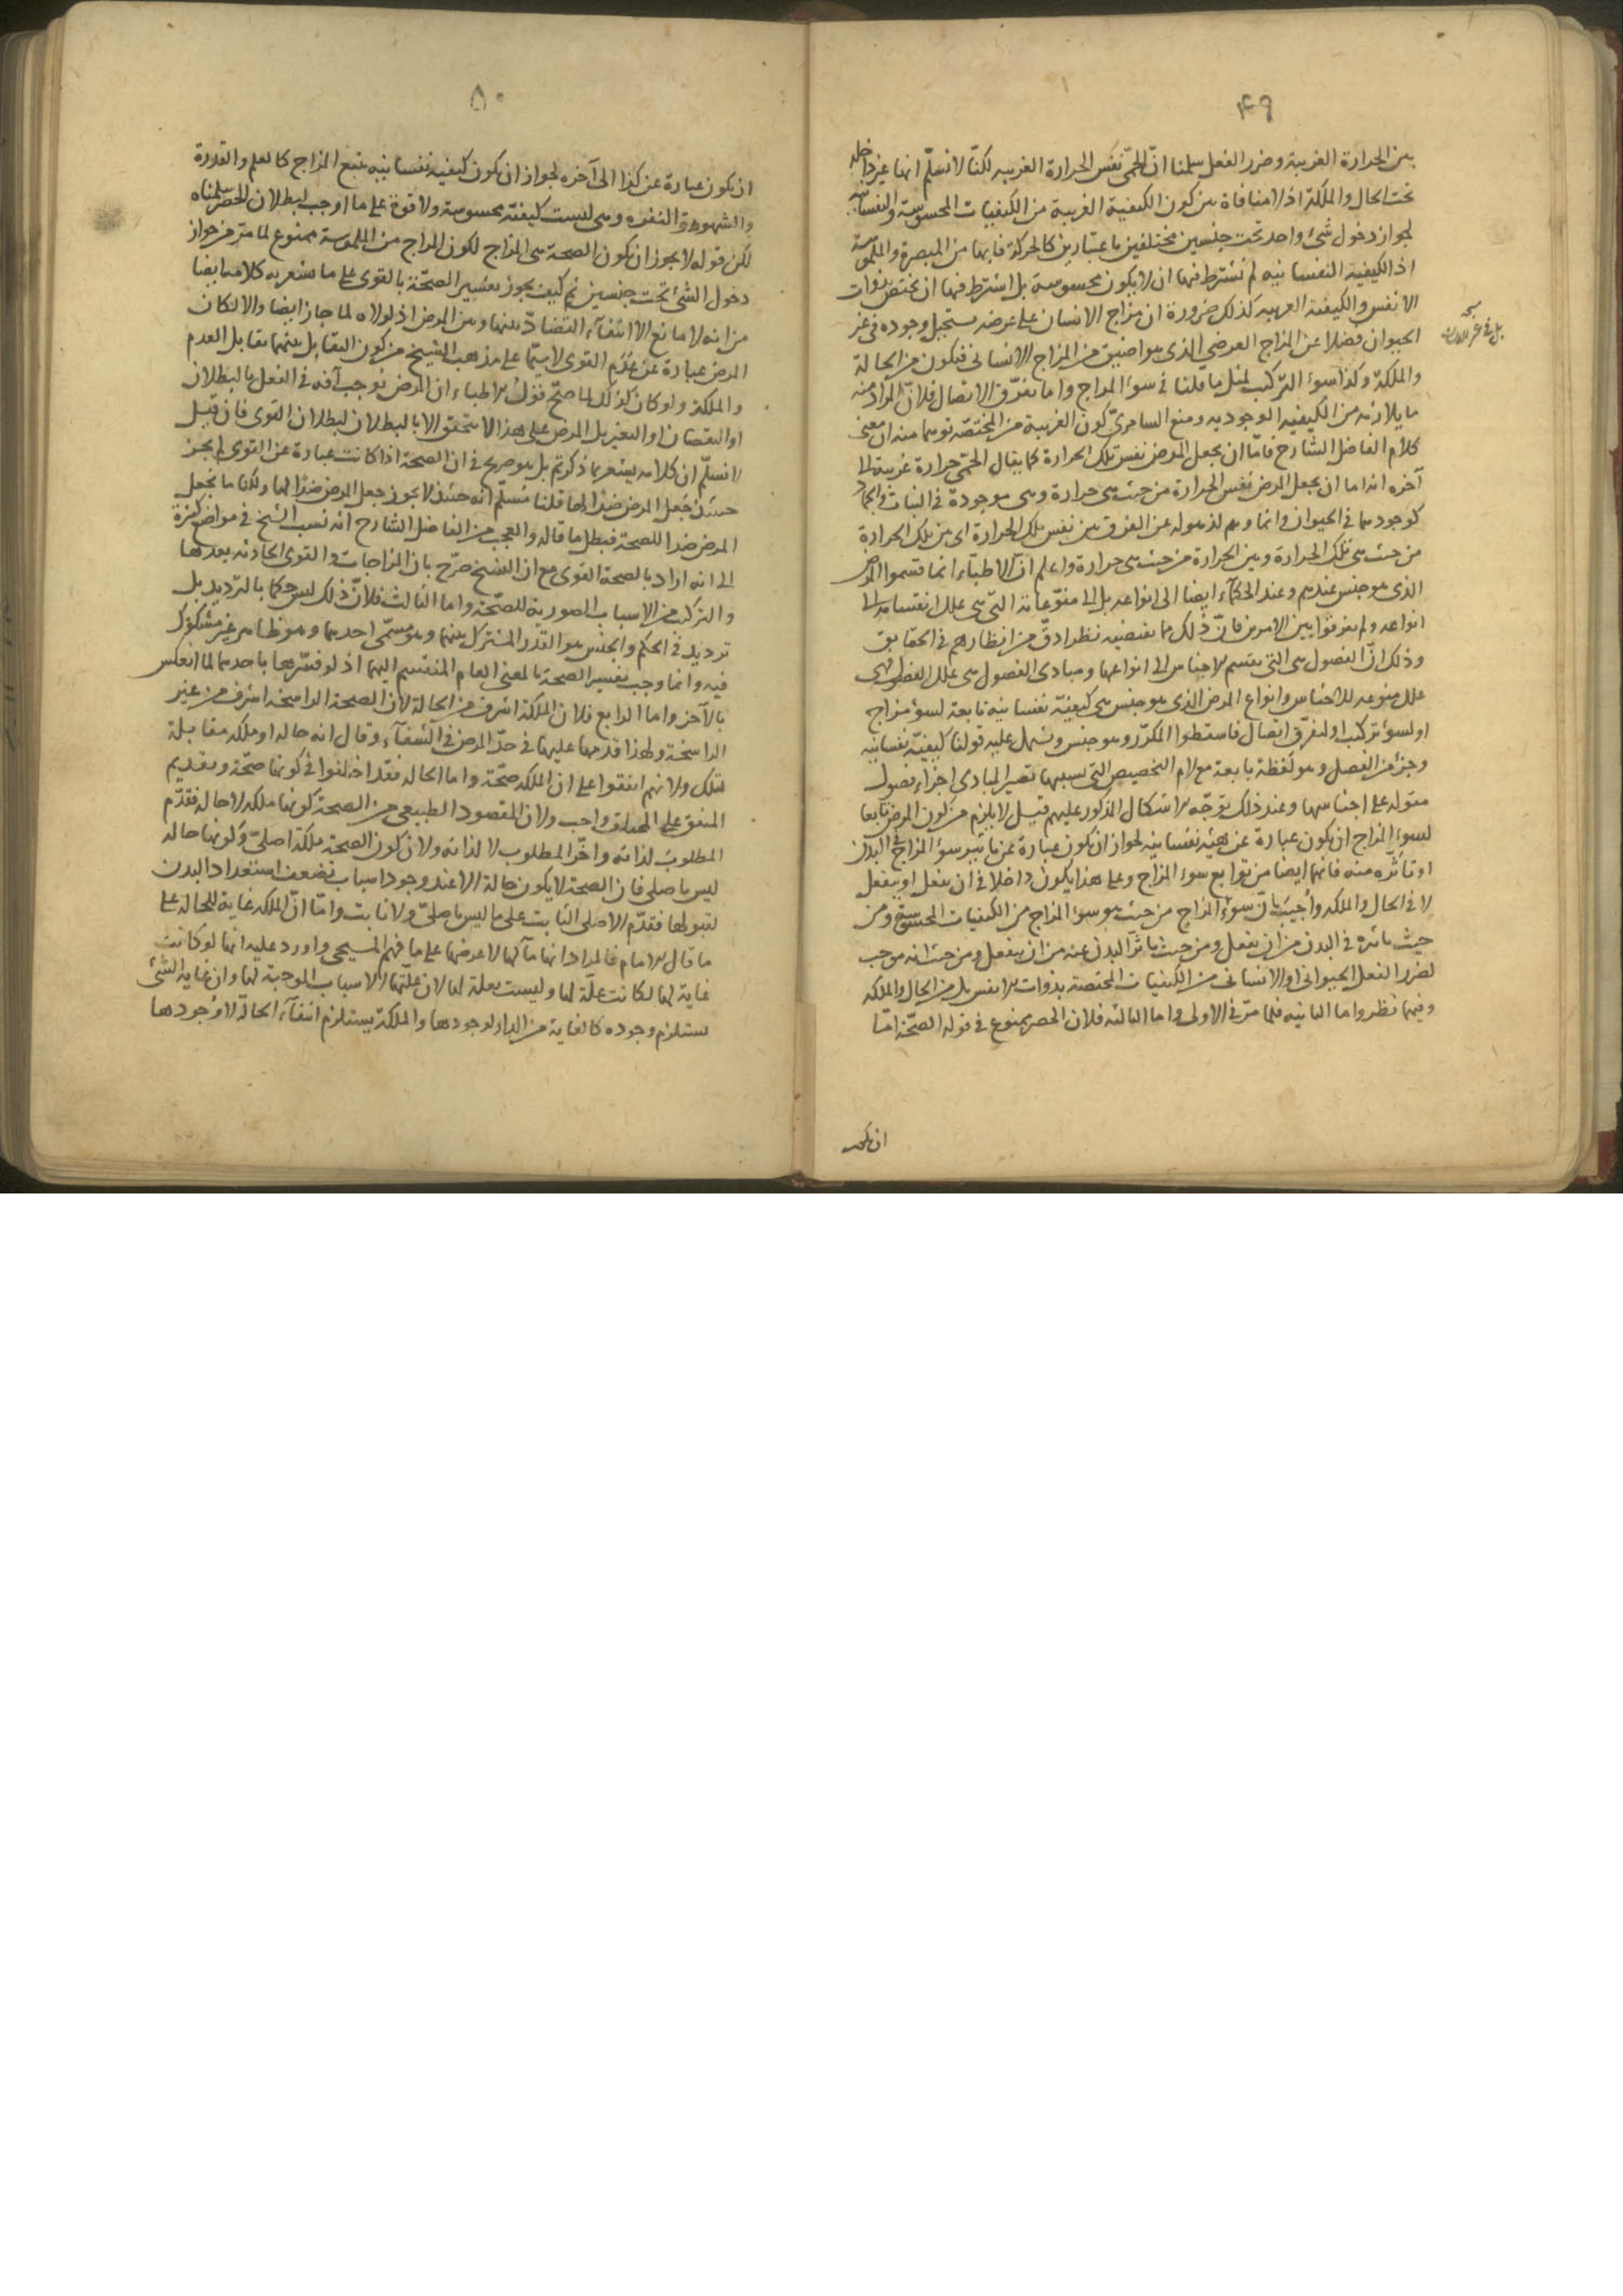 ۴۹
بين الحرارة الغريبة وضرر الفعل سلمنا انّ الحمّى نفس الحرارة الغريبه لكنّا لا نسلّم انها غير داخله
تحت الحال والملكة اذ لا منافاة بين كون الكيفية الغريبة من الكيفيات المحسوسة والنفسانيه
لجواز دخول شئ واحد تحت جنسين مختلفين باعتبارين كالحركة فانها من المبصرة والملموسة
اذ الكيفيه النفسانيه لم نشترط فيها ان لا يكون محسوسة بل اشترط فيها ان يختص بذوات
الانفس والكيفية الغريبه كذلك ضرورة ان مزاج الانسان على عرضه يستحيل وجوده في غير
الحيوان فضلا عن المزاج العرضي الذى هو اضيق من المزاج الانسانى فتكون من الحالة
والملكة وكذا سوء التركيب لمثل ما قلنا في سوء المزاج واما تفرّق الاتصال فلانّ المراد منه
ما يلازمه من الكيفيه الوجوديه ومنع السامرىّ كون الغريبة من المختصّة توهما منه ان معنى
كلام الفاضل الشارح فامّا ان يجعل المرض نفس تلك الحرارة كما يقال الحمّى حرارة غريبة الى
آخره انه اما ان يجعل المرض نفس الحرارة من حيث هى حرارة وهى موجودة في النبات والجماد
كوجودها في الحيوان وانما وهم لذهوله عن الفرق بين نفس تلك الحرارة اى بين تلك الحرارة
من حيث هى تلك الحرارة وبين الحرارة من حيث هى حرارة واعلم انّ الاطباء انما قسموا المرض
الذى هو جنس عندهم وعند الحكماء ايضا الى انواعه بل الى منوّعاته التى هى علل انقسامه الى
انواعه ولم يفرقوا بين الامرين فانّ ذلك مما يقتضيه نظر ادقّ من انظارهم في الحقايق
وذلك انّ الفصول هى التى تقسم الاجناس الى انواعها ومبادى الفصول هى علل الفصول فهى
علل منوعه للاجناس وانواع المرض الذى هو جنس هى كيفيّة نفسانيه تابعة لسوء مزاج
او لسوء تركيب او لتفرق اتصال فاسقطوا المكرّر وهو جنس ويشمل عليه قولنا كيفيّة نفسانيه
وجزء من الفصل وهو لفظة تابعة مع لام التخصيص التى بسببها تصير المبادى اجزاء فصول
مقوله على اجناسها وعند ذلك توجّه الاشكال المذكور عليهم قيل لا يلزم من كون المرض تابعا
لسوء المزاج ان يكون عبارة عن هيئه نفسانيه لجواز ان يكون عبارة عن تاثير سوء المزاج في البدن
او تاثّره منه فانهما ايضا من توابع سوء المزاج وعلى هذا يكون داخلا في ان يفعل او ينفعل
لا في الحال والملكه وأجيب بانّ سوء المزاج من حيث هو سوء المزاج من الكيفيات المحسوسة ومن
حيث تاثيره في البدن من ان يفعل ومن حيث تاثر البدن عنه من ان ينفعل ومن حيث انه موجب
لضرر الفعل الحيوانى او الانسانى من الكيفيات المختصة بذوات الانفس بل من الحال والملكه
وفيهما نظر واما الثانيه فلما مرّ في الاولى واما الثالثه فلان الحصر ممنوع في قوله الصحّة امّا
ان يكون
۵۰
ان يكون عبارة عن كذا الى آخره لجواز ان يكون كيفيه نفسانيه يتبع المزاج كالعلم والقدرة
والشهوة والنفره وهى ليست كيفيّة محسوسة ولا قوة على ما اوجب لبطلان الحصر سلمناه
لكن قوله لا يجوز ان يكون الصحة هى المزاج لكون المزاج من الملموسة ممنوع لما مرّ من جواز
دخول الشئ تحت جنسين ثم كيف يجوز تفسير الصحّة بالقوى على ما يشعر به كلامه ايضا
من انه لا مانع الا انتفاء التضادّ بينها وبين المرض اذ لولاه لما جاز ايضا والا لكان
المرض عبارة عن عدم القوى لا سيّما على مذهب الشيخ من كون التقابل بينهما تقابل العدم
والملكة ولو كان كذلك لما صحّ قول الاطباء ان المرض يوجب آفة في الفعل بالبطلان
او النقصان او التغير بل المرض على هذا لا يتحقق الا بالبطلان لبطلان القوى فان قيل
لا نسلّم ان كلامه يشعر بما ذكرتم بل هو صريح في ان الصحة اذا كانت عبارة عن القوى لم يجز
حينئذ جعل المرض ضدا لها قلنا نسلّم انه حينئذ لا يجوز جعل المرض ضدا لها ولكنا ما نجعل
المرض ضدا للصحة فبطل ما قاله والعجب من الفاضل الشارح انه نسب الشيخ في مواضع كثيرة
الى انه اراد بالصحة القوى مع ان الشيخ صرّح بان المزاجات والقوى الحادثه بعدها
والتركيب من الاسباب الصورية للصحّة واما الثالث فلانّ ذلك ليس حكما بالترديد بل
ترديد في الحكم والجنس هو القدر المشترك بينهما وهو مسمّى احدهما وهو ظاهر غير مشكوك
فيه وانما وجب تفسير الصحة بالمعنى العام المنقسم اليهما اذ لو فسّرها باحدهما لما انعكس
بالآخر واما الرابع فلان الملكة اشرف من الحالة لان الصحة الراسخه اشرف من غير
الراسخة ولهذا قدمها عليها في حدّ المرض في الشفاء وقال انه حاله او ملكه مقابلة
لتلك ولانهم اتفقوا على ان الملكه صحّة واما الحاله فقد اختلفوا في كونها صحّة وتقديم
المتفق على المختلف واجب ولان المقصود الطبيعى من الصحة كونها ملكه لا حاله فقدّم
المطلوب لذاته واخّر المطلوب لا لذاته ولان كون الصحة ملكة اصلىّ وكونها حاله
ليس باصلى فان الصحة لا يكون حالة الا عند وجود اسباب تضعف استعداد البدن
لقبولها فقدّم الاصلى الثابت على ما ليس باصلىّ ولا ثابت وامّا انّ الملكه غاية للحاله على
ما قال الامام فالمراد انها مآلها لا غرضها على ما فهم المسيحى واورد عليه انها لو كانت
غاية لها لكانت علّة لها وليست بعلة لها لان علّتها الاسباب الموجبة لها وان غاية الشئ
يستلزم وجوده كالغاية من الدار لوجودها والملكة يستلزم انتفاء الحالة لا وجودها